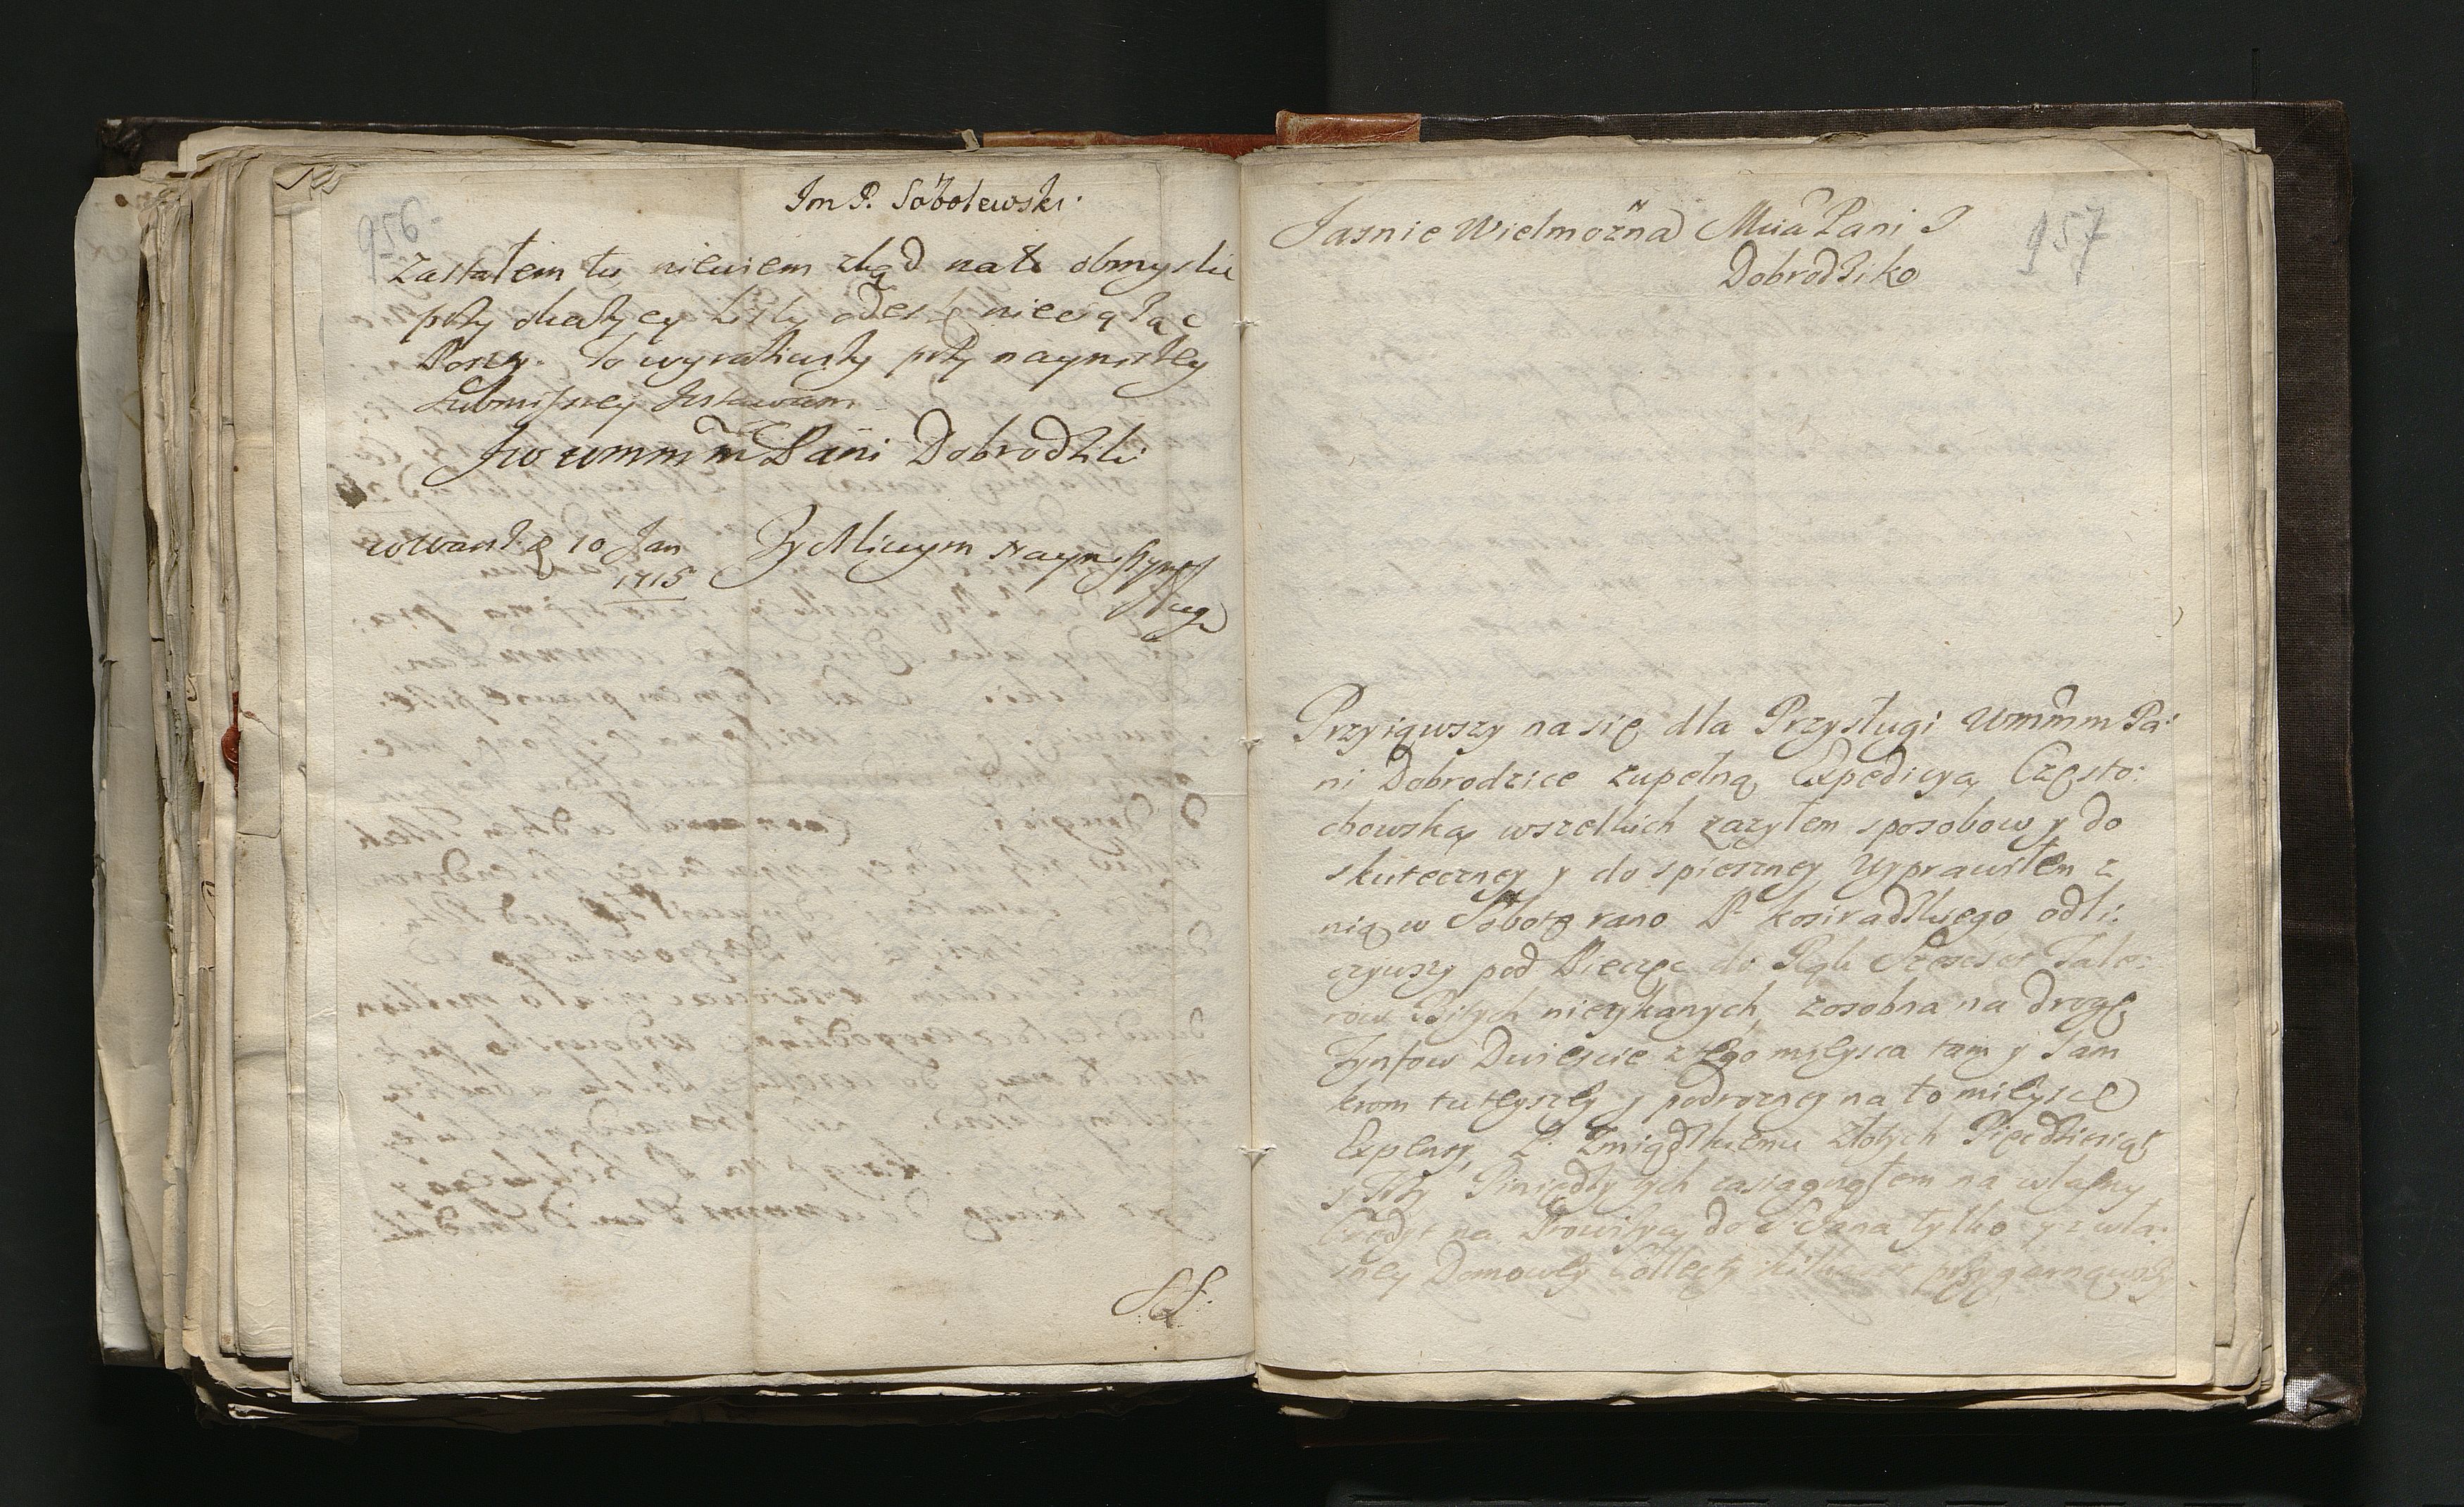 956
Im P. Sobolewski.
Zastałem tu niewiem zkąd nato obmyslic
przy okazyey Listy odesł niewiąząc
Poszy. To wyraziwszy przy nayniszey
Submissiey Iestwam
Jw wmm m Pani Dobrodziki
wWarsz 10 Jan
1715
Zyczliwym Nayniszszym
Sługą
957
Jasnie Wielmożna Mcia Pani J
Dobrodziko
Przyiąwszy na się dla Przysługi Wmmm Pa:
ni Dobrodzice zupełną Expedicyą Często:
chowską wszelkich zazyłem sposobow y do
skuteczney y do spieszney Wyprawiłem z
nią w Sobotę rano P. kosiradzkiego odli:
czywszy pod Pieczęc do Rąk Szescset Tale:
row Bitych nietykanych, zosobna na drogę
Tynfow Dwiescie z tego mieysca tam y Sam
krom tuteyszey y podrozney na to mieysce
Expensy, P. Zmiądzkiemu złotych Pięcdziesiąt
y Trzy Piniędzy tych zasiągnąłem na własny
Credyt na Prowizyą do S Jana tylko y z wła:
sney Domowey Collecty przygarnąwszy